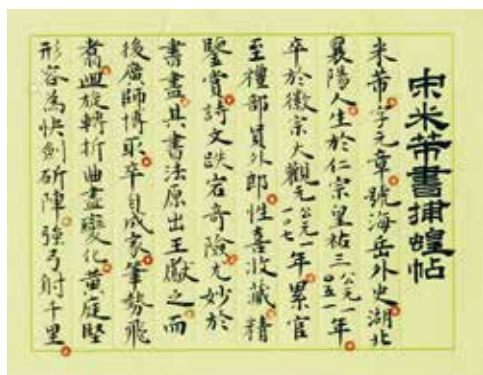 宋米芾書捕蝗帖
米芾字元章號海岳外史湖北
襄陽人生於仁宗皇祐三公元一〇五一年
卒於徽宗大觀元公元一一〇七年累官
至禮部員外郎性喜收藏精
鑒賞詩文跌宕奇險尤妙於
書畫其書法原出王獻之而
後廣師博取卒自成家筆勢飛
翥旋轉折曲盡變化黃庭堅
形容為快劍斫陣強弓射千里